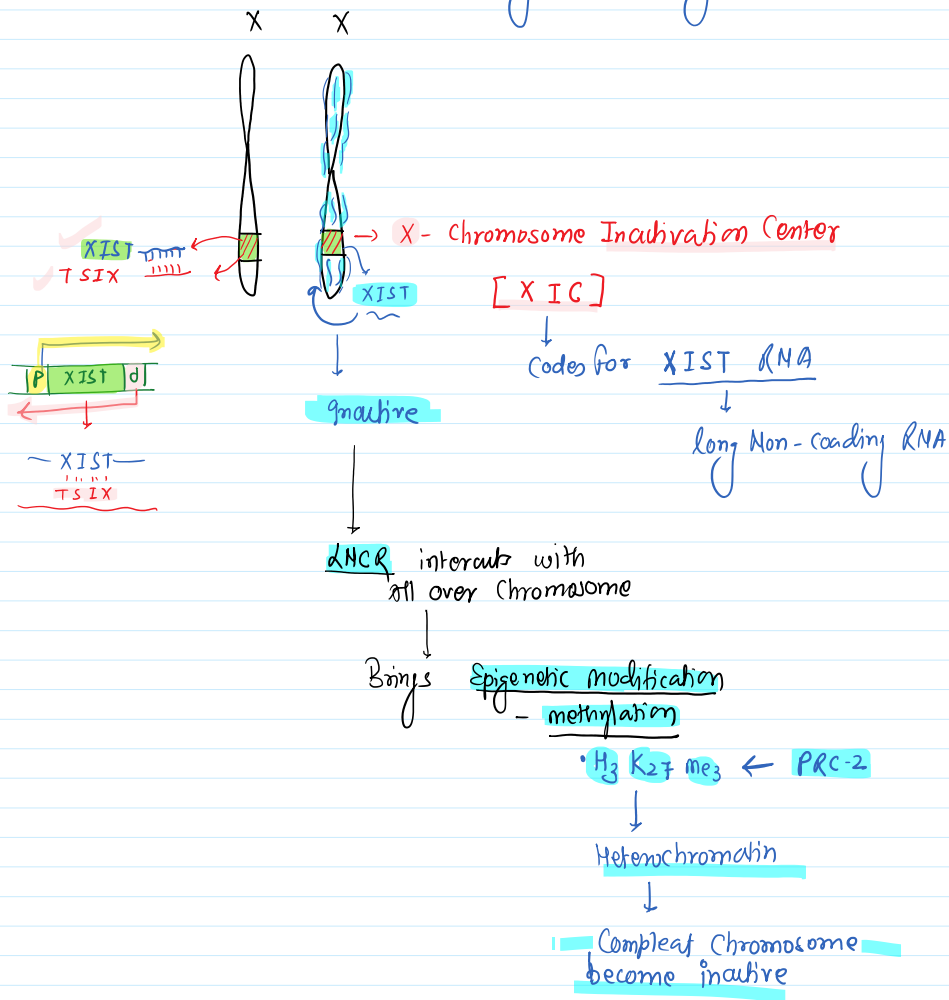 X X
→ X - Chromosome Inactivation Center
XIST
TSIX
XIST
[XIC]
P XIST d
Codes for XIST RNA
Inactive
long Non-coading RNA
XIST
TSIX
LNCR interacts with
all over Chromosome
Brings Epigenetic modification
- methylation
• H3 K27 me3 ← PRC-2
Heterochromatin
Compleat Chromosome
become inactive